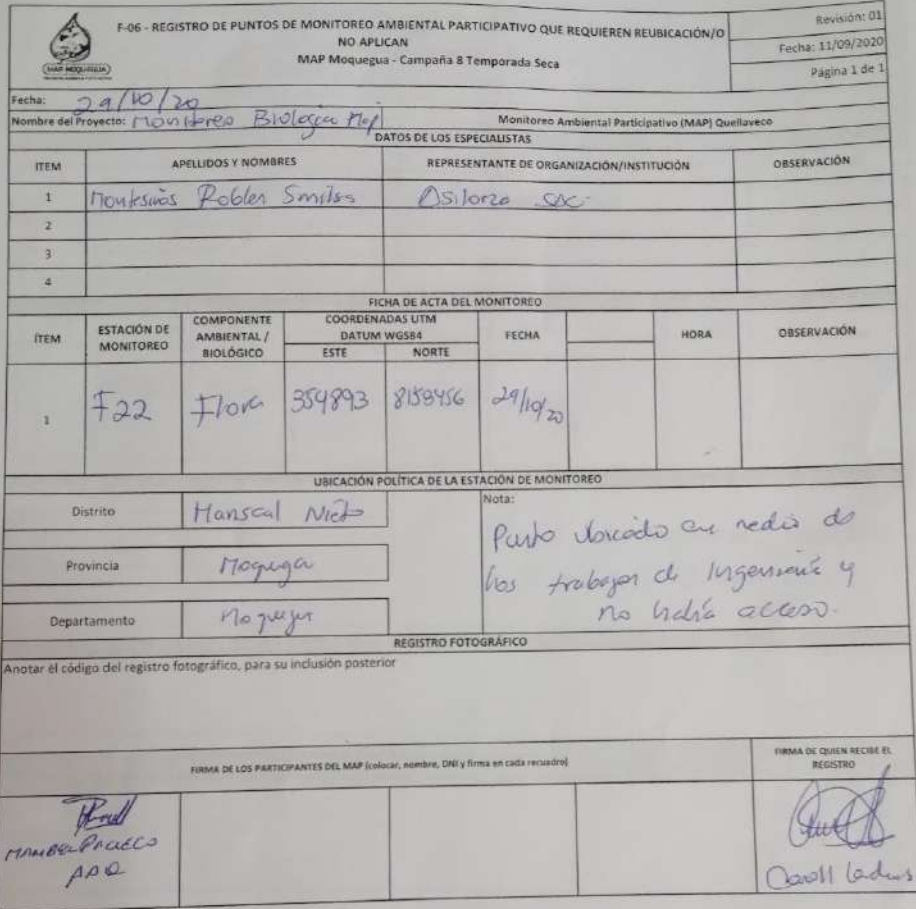 F-06 - REGISTRO DE PUNTOS DE MONITOREO AMBIENTAL PARTICIPATIVO QUE REQUIEREN REUBICACIÓN/O
NO APLICAN
MAP Moquegua - Campaña 8 Temporada Seca
Revisión: 01
Fecha: 11/09/2020
Página 1 de 1
MAP MOQUEGUA
Fecha: 29/10/20
Nombre del Proyecto: Monitoreo Biologico Map Monitoreo Ambiental Participativo (MAP) Quellaveco
DATOS DE LOS ESPECIALISTAS
ITEM APELLIDOS Y NOMBRES REPRESENTANTE DE ORGANIZACIÓN/INSTITUCIÓN OBSERVACIÓN
1 Montesinos Robles SAC
2
3
4
FICHA DE ACTA DEL MONITOREO
ÍTEM ESTACIÓN DE MONITOREO COMPONENTE AMBIENTAL / BIOLÓGICO COORDENADAS UTM DATUM WGS84 FECHA HORA OBSERVACIÓN
ESTE NORTE
1 F22 Flora 354893 8158456 29/10/20
UBICACIÓN POLÍTICA DE LA ESTACIÓN DE MONITOREO
Distrito Mariscal Nieto
Provincia Moquegua
Departamento Moquegua
Nota:
Punto Ubicado en medio de
los trabajos de Ingeniería y
no había acceso.
REGISTRO FOTOGRÁFICO
Anotar el código del registro fotográfico, para su inclusión posterior
FIRMA DE LOS PARTICIPANTES DEL MAP (colocar, nombre, DNI y firma en cada recuadro)
FIRMA DE QUIEN RECIBE EL
REGISTRO
PACHECO
AAQ